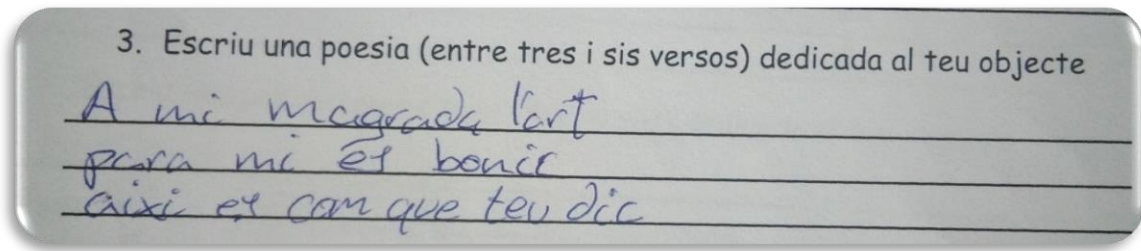 3. Escriu una poesia (entre tres i sis versos) dedicada al teu objecte
A mi magrada l'art
para mi és bonic
aixi es com que teu dic